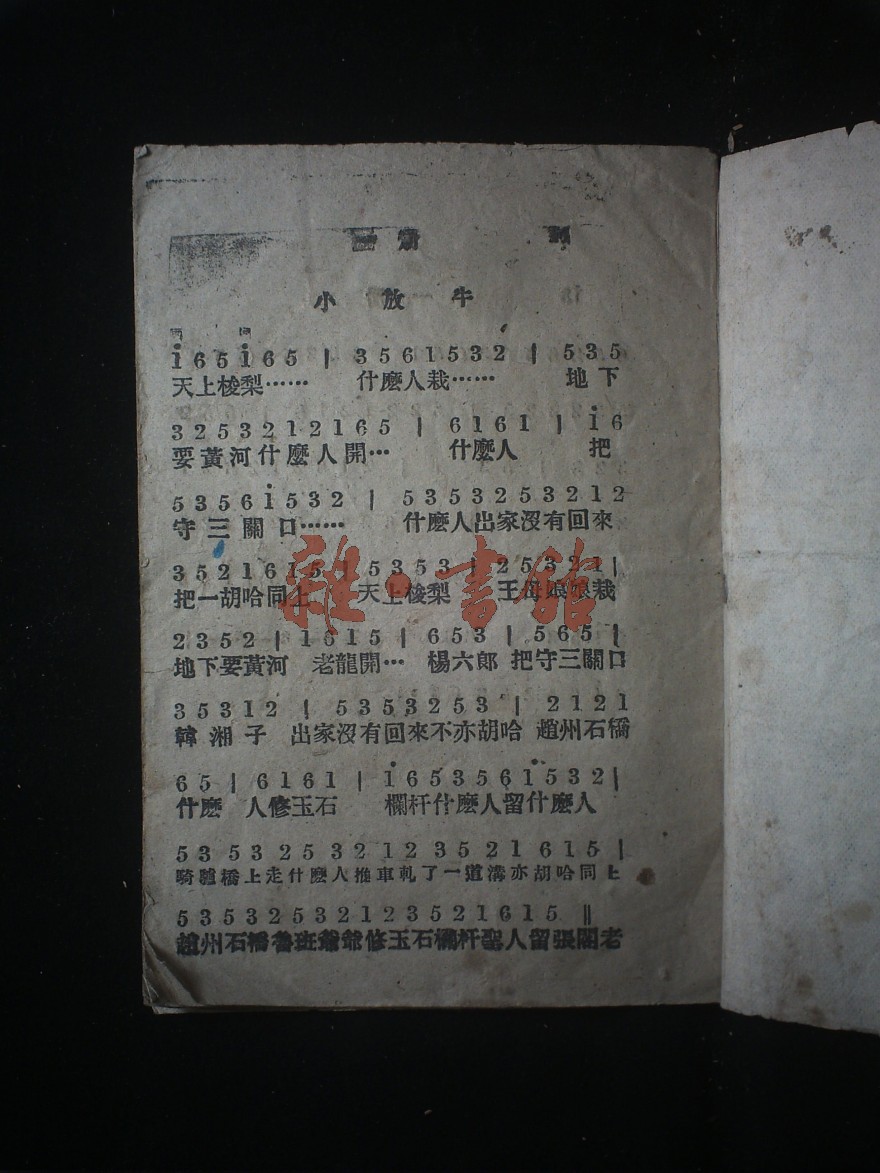 小放牛
1̇ 6 5 1̇ 6 5 | 3 5 6 1 5 3 2 | 5 3 5
天上梭梨…… 什麼人栽…… 地下
3 2 5 3 2 1 2 1 6 5 | 6 1 6 1 | 1̇ 6
要黃河什麼人開… 什麼人 把
5 3 5 6 1̇ 5 3 2 | 5 3 5 3 2 5 3 2 1 2
守三關口…… 什麼人出家沒有回來
3 5 2 1 6 1 5 | 5 3 5 3 | 2 5 3 2 1 |
把一胡哈同上 天上梭梨 王母娘娘栽
2 3 5 2 | 1 6 1 5 | 6 5 3 | 5 6 5 |
地下要黃河 老龍開… 楊六郎 把守三關口
3 5 3 1 2 | 5 3 5 3 2 5 3 | 2 1 2 1
韓湘子 出家沒有回來不亦胡哈 趙州石橋
6 5 | 6 1 6 1 | 1̇ 6 5 3 5 6 1̇ 5 3 2 |
什麼 人修玉石 欄杆什麼人留什麼人
5 3 5 3 2 5 3 2 1 2 3 5 2 1 6 1 5 |
騎驢橋上走什麼人推車軋了一道溝亦胡哈同上
5 3 5 3 2 5 3 2 1 2 3 5 2 1 6 1 5 ‖
趙州石橋魯班爺爺修玉石欄杆聖人留張閣老
雜·書館